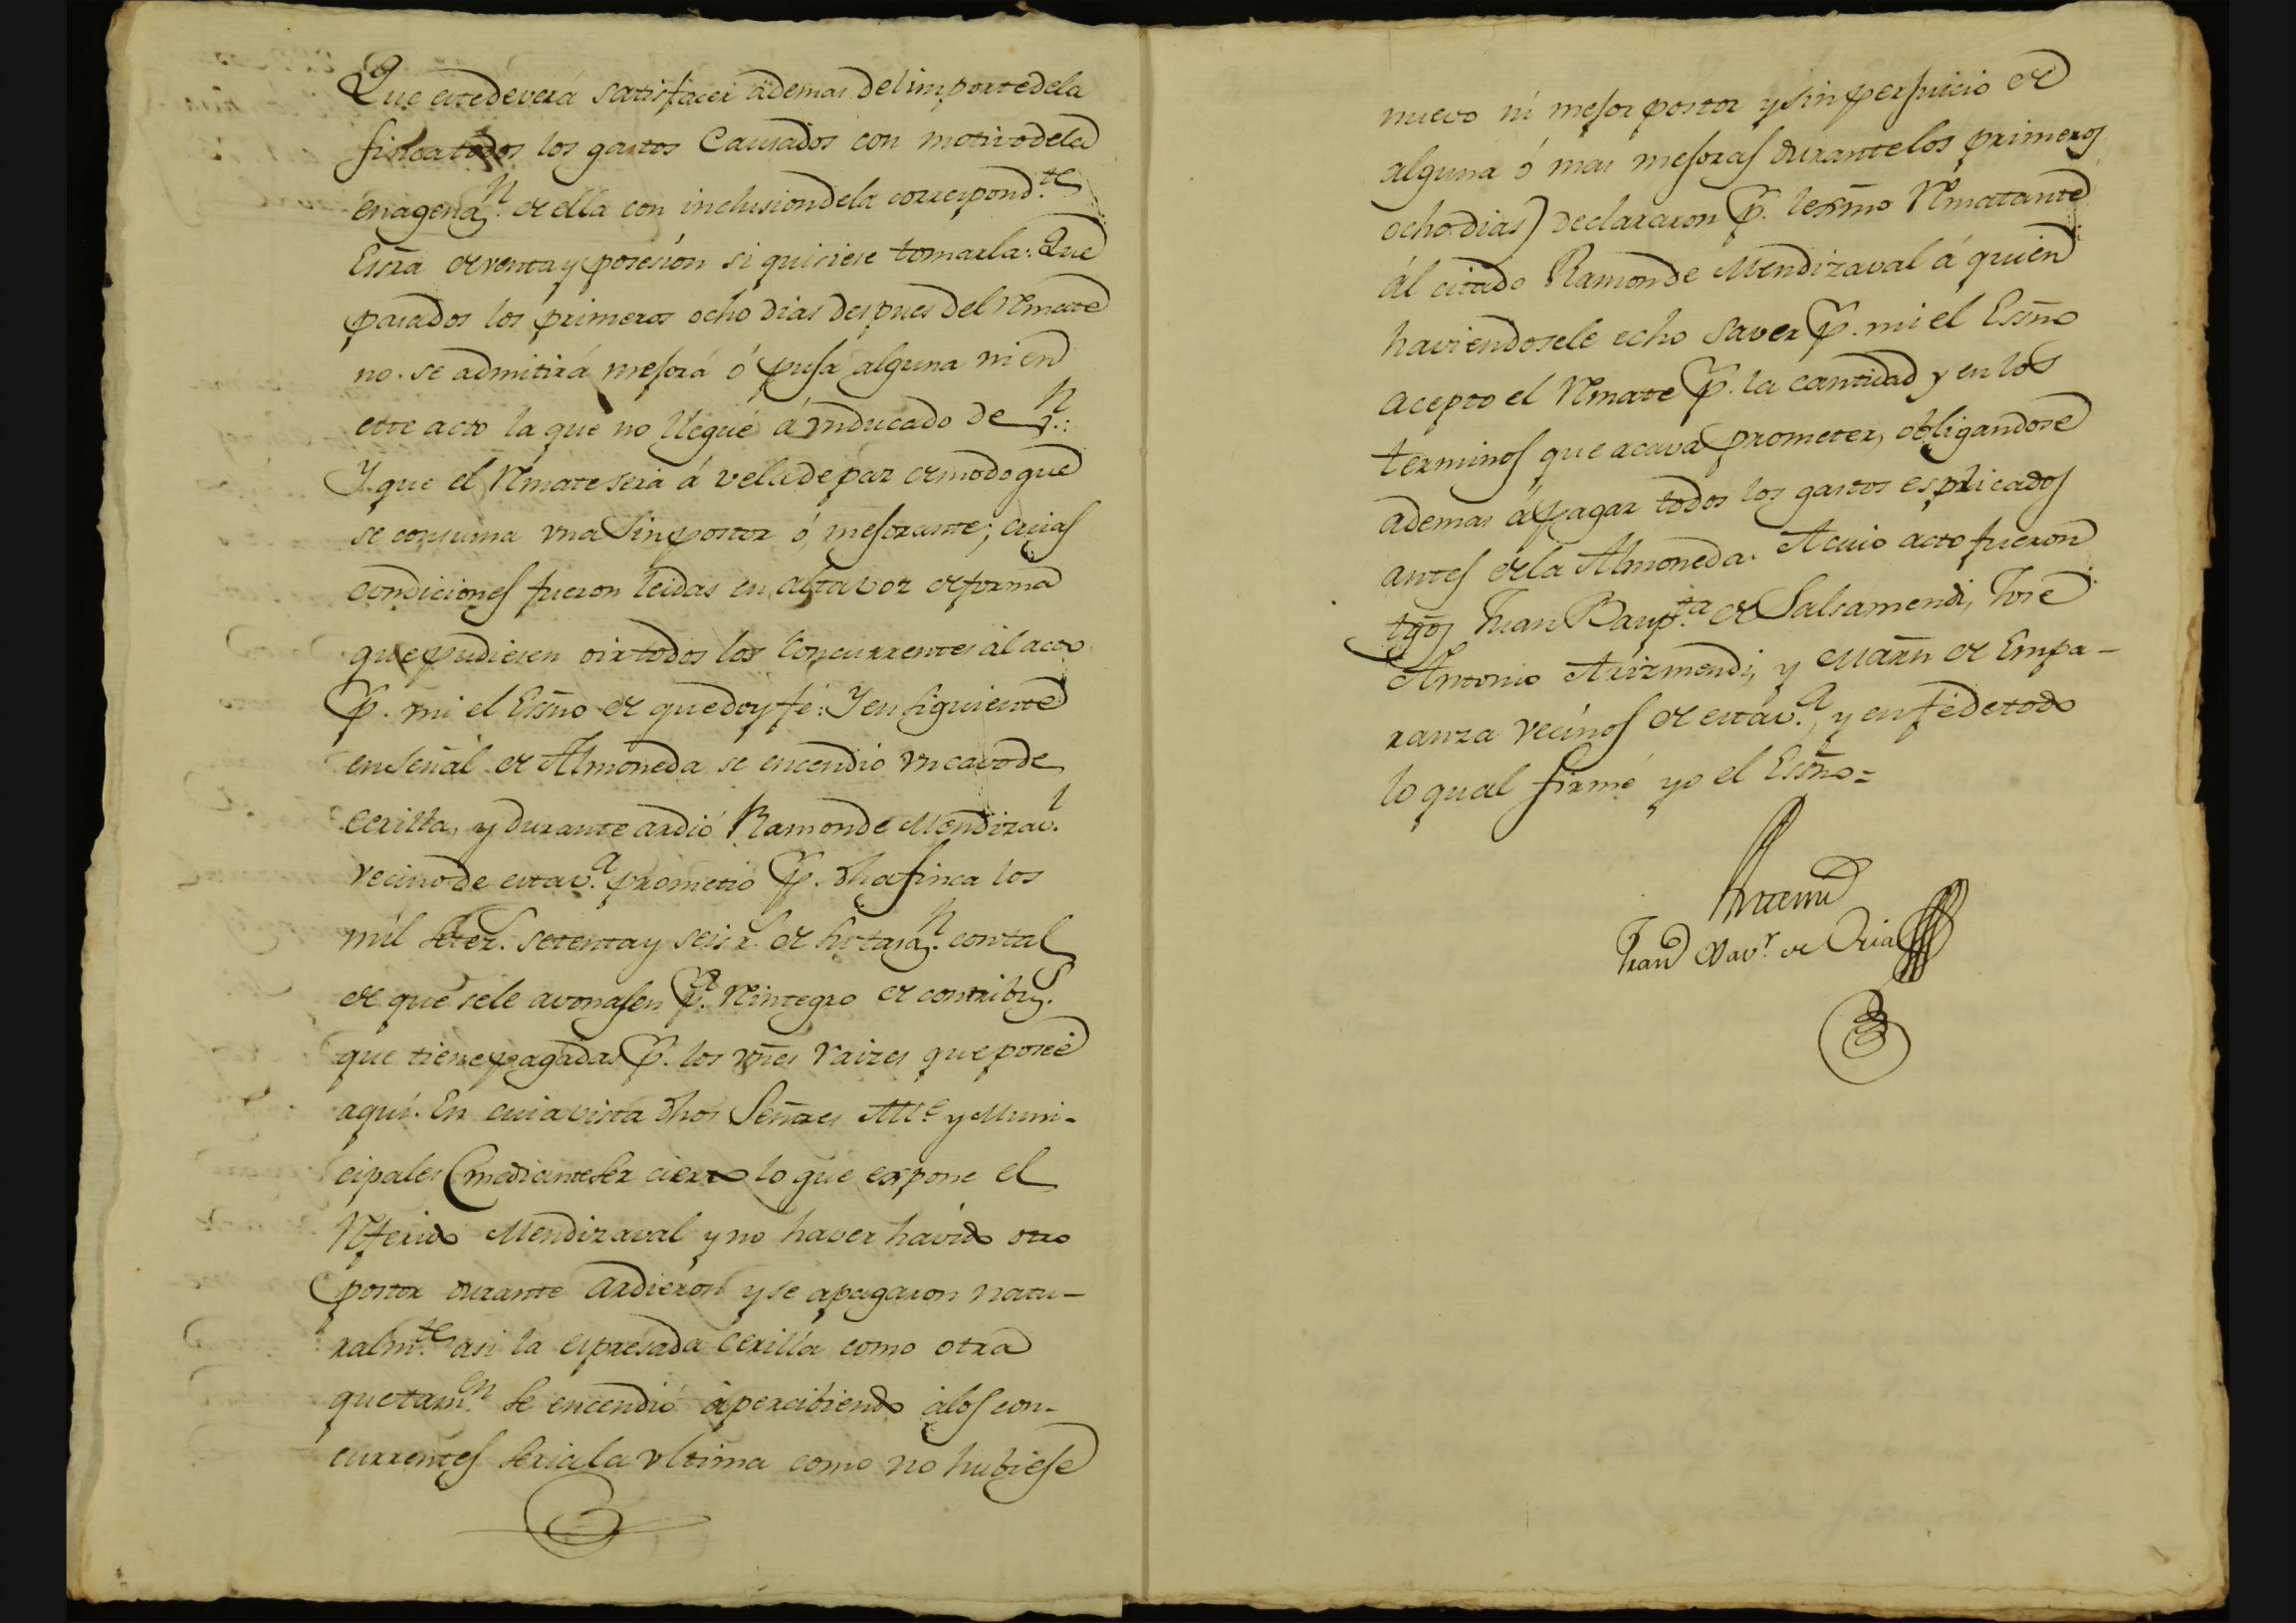 Que este deverá satisfacer ademas del importe de la
finca todos los gastos Causados con motivo de la
enagenaz.n de ella con inclusion de la correspond.te
Essra de venta y posesión si quisiere tomarla: Que
pasados los primeros ocho dias despues del Rmate
no se admitirá mejora ó puja alguna ni en
este acto la que no llegue á un ducado de v.n:
Y que el Rmate sera á vela de par de modo que
se consuma una sin postor ó mejorante; cuias
condiciones fueron leidas en alta voz de forma
que pudiesen oir todos los Concurrentes al acto
p. mi el Essno de que doy fé: Y en siguiente
en señal de Almoneda se encendio un cavo de
cerilla, y durante ardió Ramon de Mendizav.l
vecino de esta v.a prometio p. dha finca los
mil setez. setenta y seis r.s de su tasaz.n con tal
de que se le avonasen p.a Rintegro de contribuz.s
que tiene pagadas p. los vnes raizes que poseé
aqui. En cuia vista dhos Señres Alc.e y Muni-
cipales (mediante ser cierto lo que expone el
Rferido Mendizaval y no haver havido otro
postor durante ardieron y se apagaron natu-
ralm.te asi la espresada cerilla como otra
que tam.en se encendió apercibiendo a los con-
currentes seria la ultima como no hubiese
nuevo ni mejor postor y sin perjuicio de
alguna ó mas mejoras durante los primeros
ocho dias) declararon p. lexmo Rmatante
ál citado Ramon de Mendizaval á quien
haviendosele echo saver p. mi el Essno
acepto el Rmate p. la cantidad y en los
terminos que acava prometer, obligandose
ademas á pagar todos los gastos esplicados
antes de la Almoneda. A cuio acto fueron
tgos Juan Baup.ta de Salsamendi, Jose
Antonio Arizmendi, y Marn de Empa-
ranza vecinos de esta v.a, y en fé de todo
lo qual firmé yo el Essno=
Antemi
Juan Nav.r de Oria